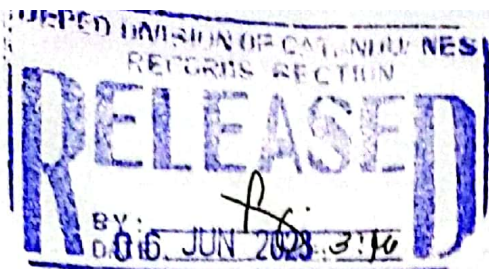 DEPED DIVISION OF CATANDUANES
RECORDS SECTION
RELEASED
BY:
DATE 06 JUN 2023 3:46